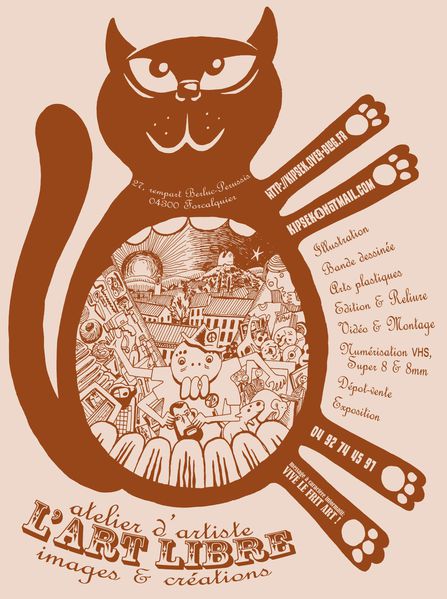 27, rempart Berluc-Perussis
04300 Forcalquier
HTTP://KIPSEK.OVER-BLOG.FR
KIPSEK@HOTMAIL.COM
Illustration
Bande dessinée
Arts plastiques
Edition & Reliure
Vidéo & Montage
Numérisation VHS,
Super 8 & 8mm
Dépot-vente
Exposition
04 92 74 45 97
message à caractère informatif:
VIVE LE FRIT ART !
atelier d'artiste
L'ART LIBRE
images & créations